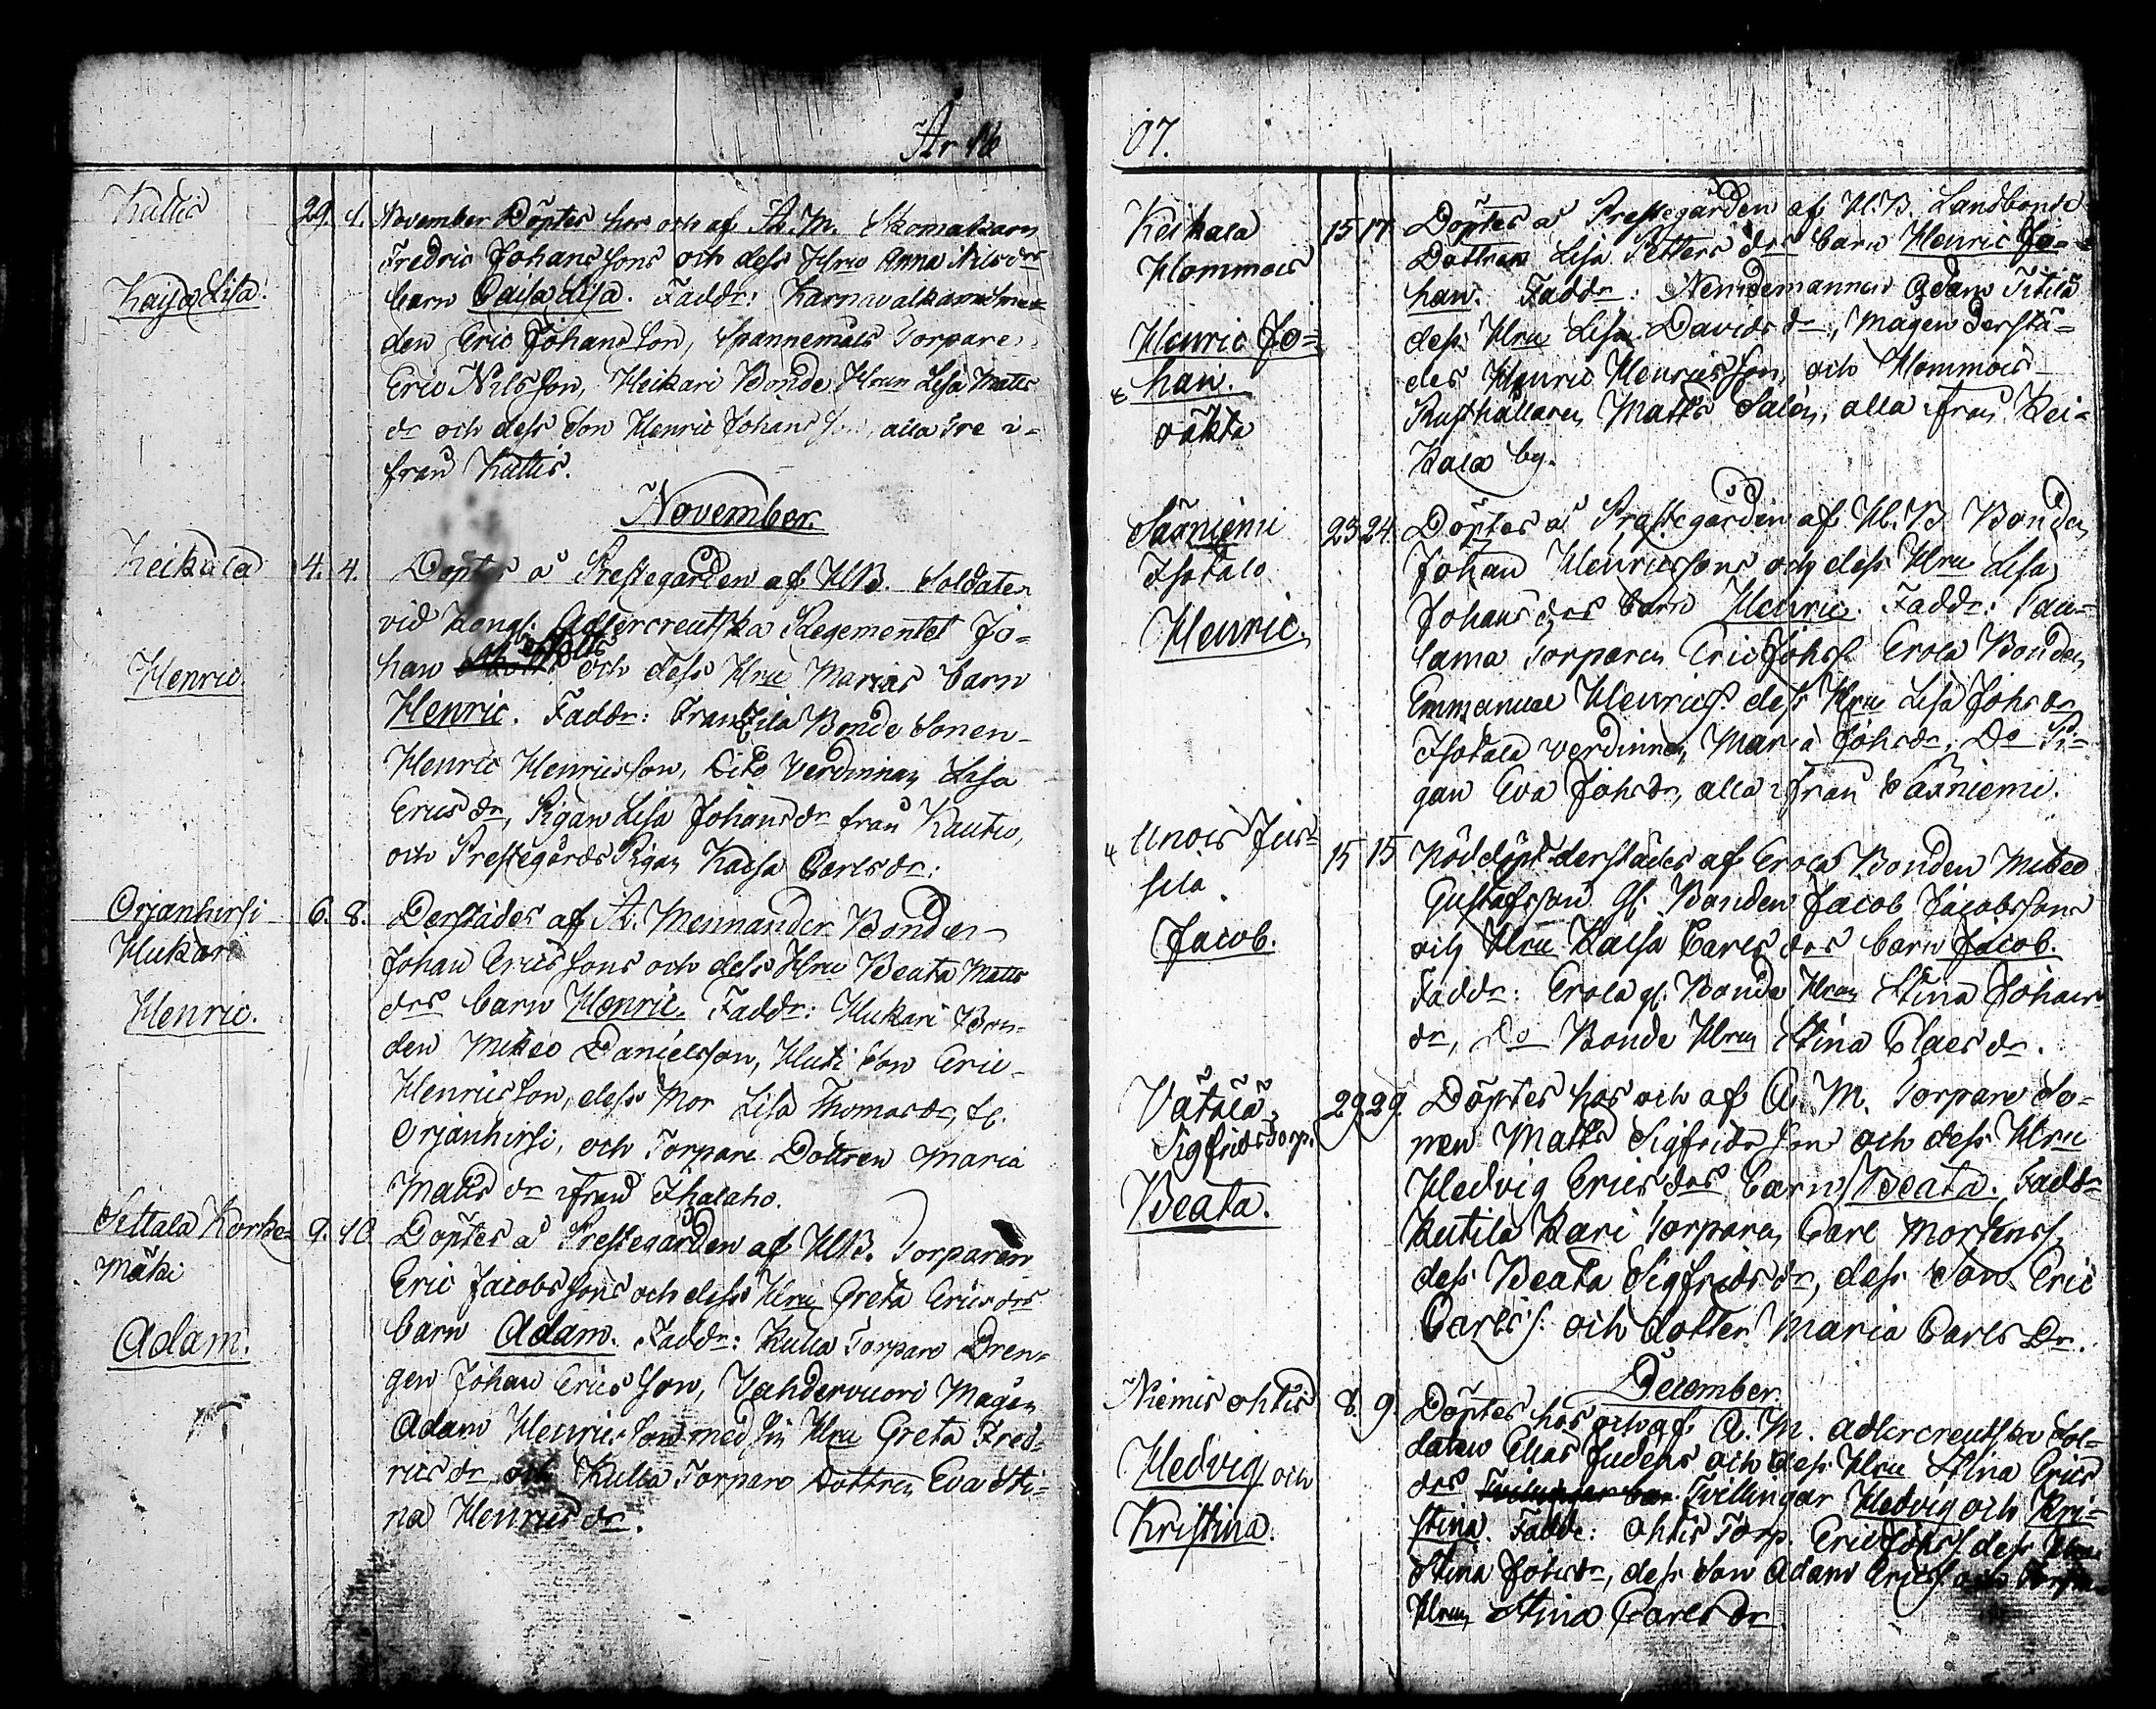 År 18
Kallis
29. 1. November Döptes hos och af A. M. Skomakaren
Fredric Johanssons och dess Hru Anna Nilsdrs
Kaijsa Lisa.
barn Caisa Lisa. Faddr:
den Eric Johansson, Spannemäls Torpare
Eric Nilsson, Heikari Bonde Hrun Lisa Matts
dr och dess Son Henric Johansson, alla tre i-
från Kallis.
November.
Keikala
4. 4. Döptes å Prestegården af HB. Soldaten
vid Kongl. Adlercreutska Regementet Jo-
han och dess Hru Marias barn
Henric
Henric. Faddr: Franssila Bonde Sonen
Henric Henricsson, Dito Verdinnan Lisa
Ericsdr, Pigan Lisa Johansdr från Kautu,
och Prestegårds Pigan Kaisa Carlsdr:
Orjanhirsi
6. 8. Derstädes af A: Mennander Bonden
Hukari
Johan Ericssons och dess Hru Beata Matts
Henric.
drs barn Henric. Faddr: Hukari Bon-
den Mikeo Danielsson, Huti Son Eric
Henricsson, dess Mor Lisa Thomasdr, fr.
Orjanhirsi, och Torpare Dottren Maria
Mattsdr ifrån Ihalaho.
Settala Korke-
9. 10. Döptes å Prestegården af HB. Torparen
mäki
Eric Jacobssons och dess Hru Greta Ericsdrs
Adam.
barn Adam. Faddr: Kulla Torpare Dren-
gen Johan Ericsson, Vahdervuori Mågen
Adam Henricsson med sin Hru Greta Fred-
ricsdr och Kulla Torpare Dottren Eva Sti-
na Henricsdr.
07.
Keikala
15 17. Döptes å Prestegården af H.B. Landbonde
Hommois
Dottren Lisa Petters drs barn Henric Jo-
han. Faddr: Nemdemannen Adam Titilä
Henric Jo-
dess Hru Lisa Davidsdr, Mågen derstä-
han.
des Henric Henricsson, och Hommois
oäkta
Rusthållaren Matts Salén, alla ifrån Kei-
kala by.
Särniemi
23 24. Döptes å Prestegården af H.B Bonden
Isotalo
Johan Henricssons och dess Hru Lisa
Henric
Johansdrs barn Henric. Faddr: Tau-
lama Torparen Eric Johss. Erola Bonden
Emmanuel Henricss. dess Hru Lisa Johsdr
Isotalo verdinnan Maria Johsdr, Do Pi-
gan Eva Johsdr, alla ifrån Särniemi.
Unois Jus-
sila.
15 15 Nöddöpt derstädes af Erola Bonden Mikeo
Gustafsson gl. Bonden Jacob Jacobssons
Jacob.
och Hru Kaisa Carlsdrs barn Jacob.
Faddr: Erola gl. Bonde Hrun Stina Johans
dr, Do Bonde Hrun Stina Claesdr.
Vätölä
29 29. Döptes hos och af A. M. Torpare So-
Sigfrids Torp.
nen Matts Sigfridsson och dess Hru
Beata.
Hedvig Ericsdrs barn Beata. Faddr
Kutila Kari Torparen Carl Mortenss.
dess Beata Sigfridsdr, dess Son Eric
Carlss. och dotter Maria Carls Dr.
December
Niemis ohtis
8. 9. Döptes hos och af A. M. Adlercreutska Sol-
daten Elias Judens och dess Hru Stina Erics
Hedvig och
drs Tvillingar Hedvig och Kri-
Kristina.
stina. Faddr: ohtis Torp. Eric Johss dess Hru
Stina Johsdr, dess Son Adam Ericss och
Hrun Stina Carlsdr